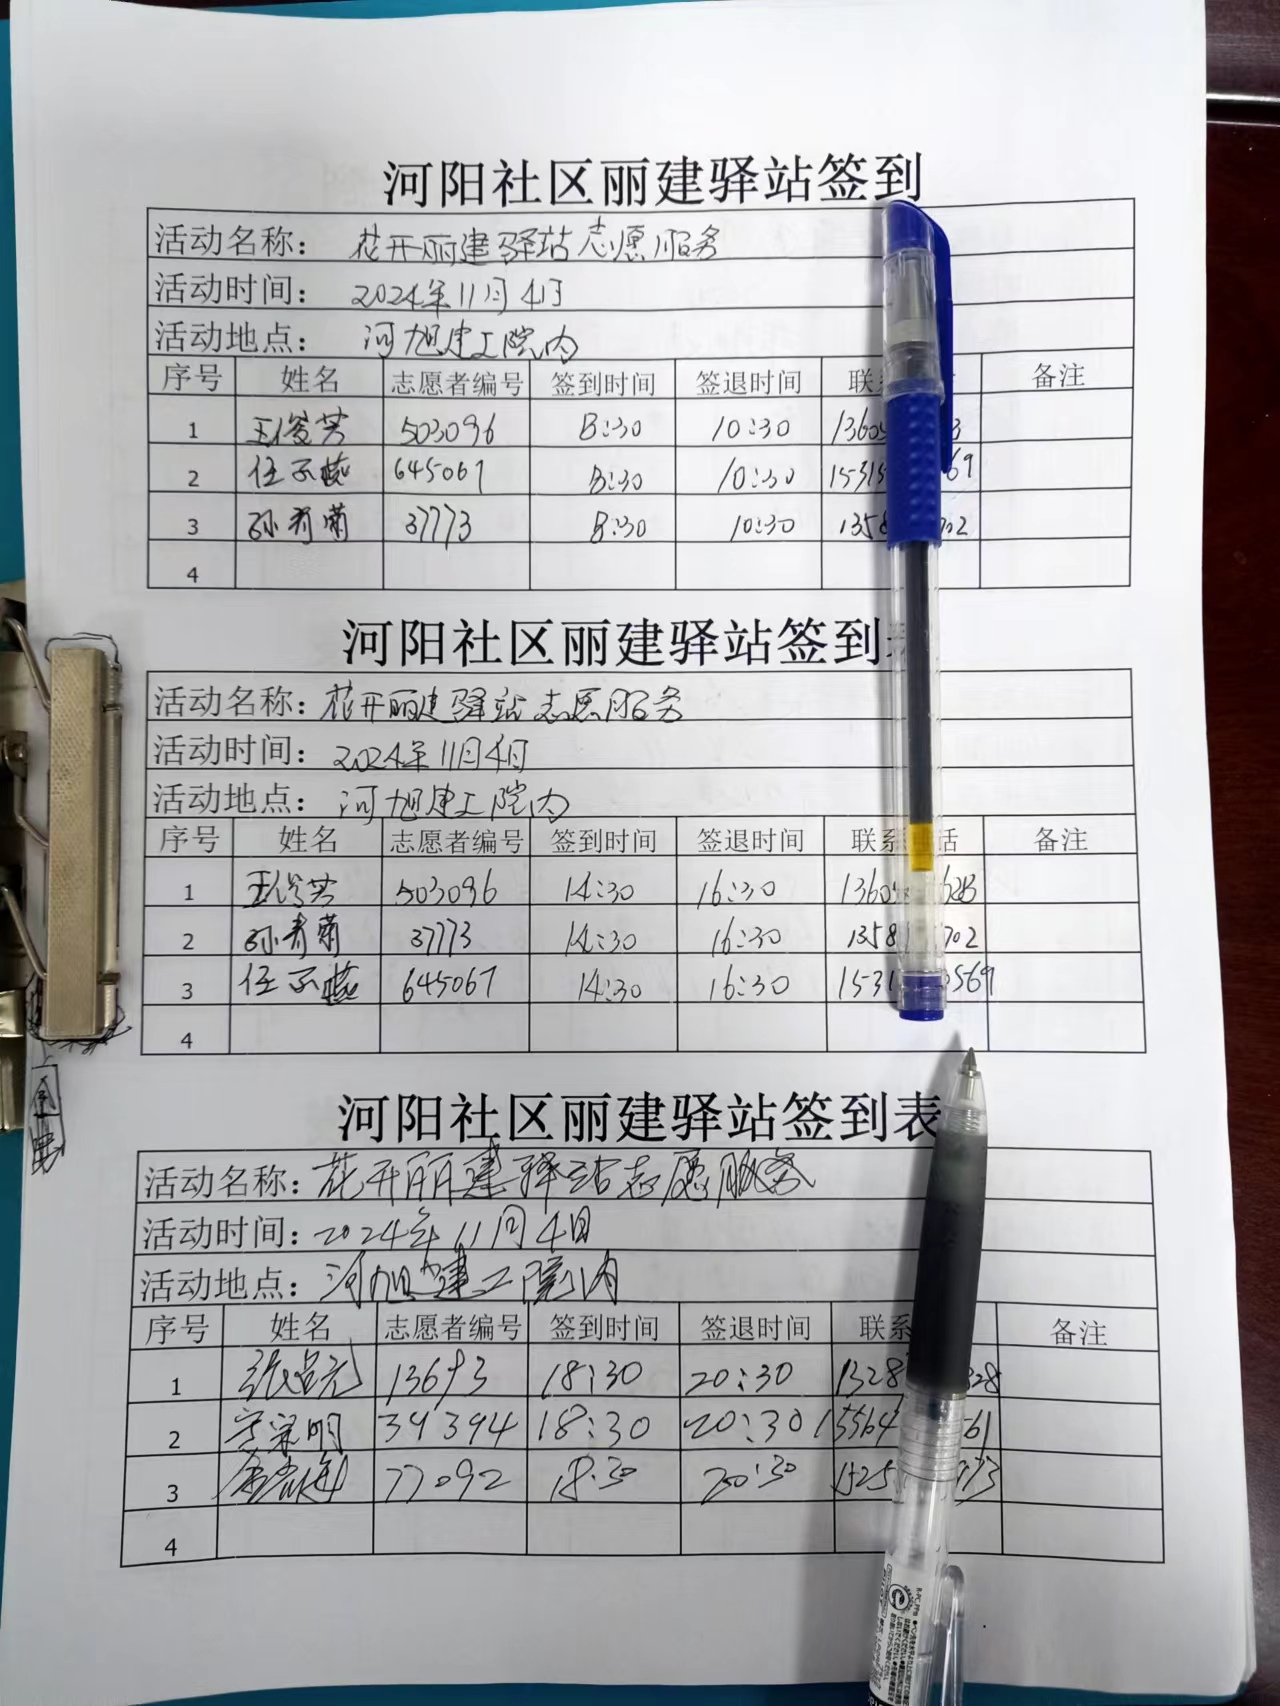 河阳社区丽建驿站签到
活动名称： 花开丽建驿站志愿服务
活动时间： 2024年11月4日
活动地点： 河旭建工院内
序号 姓名 志愿者编号 签到时间 签退时间 联 备注
1 王俊芳 503096 8:30 10:30 1360 3
2 任 645067 8:30 10:30 15315 69
3 孙青菊 37773 8:30 10:30 1358 702
4
河阳社区丽建驿站签到
活动名称： 花开丽建驿站志愿服务
活动时间： 2024年11月4日
活动地点： 河旭建工院内
序号 姓名 志愿者编号 签到时间 签退时间 联系 话 备注
1 王俊芳 503096 14:30 16:30 1360 628
2 孙青菊 37773 14:30 16:30 1358 702
3 任 645067 14:30 16:30 1531 0569
4
河阳社区丽建驿站签到表
活动名称： 花开丽建驿站志愿服务
活动时间： 2024年11月4日
活动地点： 河旭建工院内
序号 姓名 志愿者编号 签到时间 签退时间 联系 备注
1 张 13693 18:30 20:30 1328 328
2 明 39394 18:30 20:30 15564 561
3 77092 18:30 20:30 1525 973
4